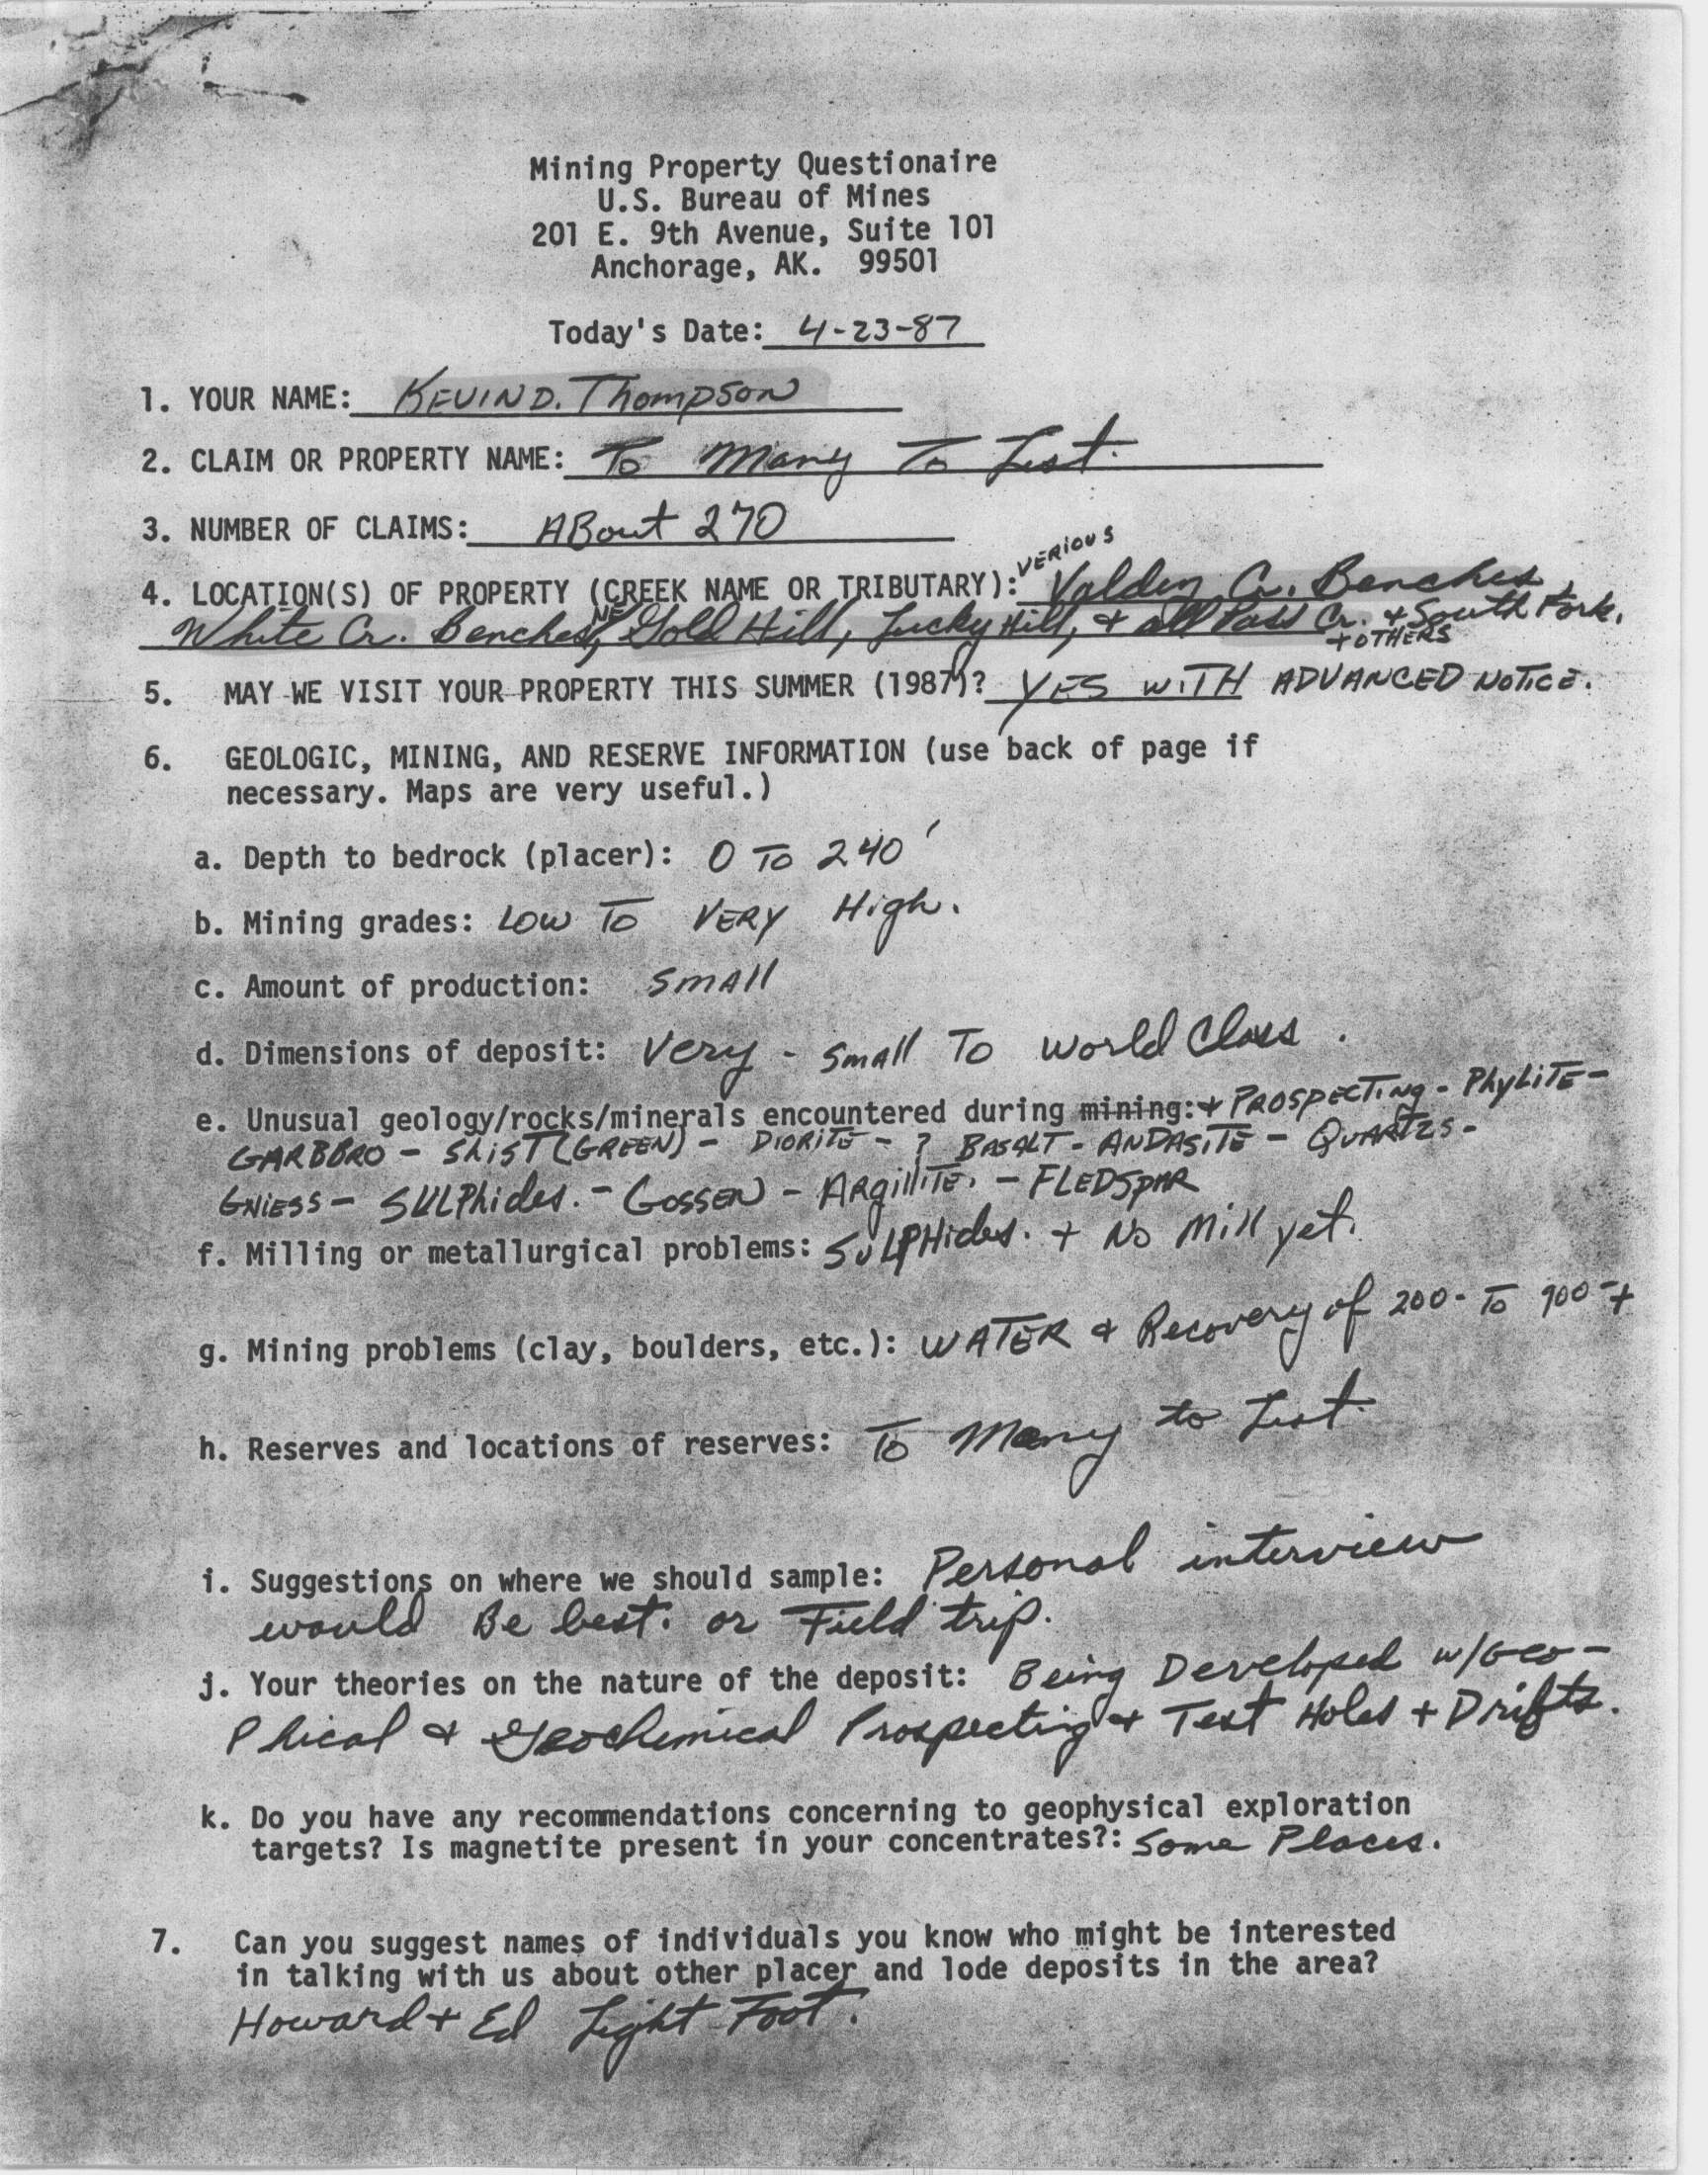 Mining Property Questionaire
U.S. Bureau of Mines
201 E. 9th Avenue, Suite 101
Anchorage, AK. 99501
Today's Date: 4-23-87
1. YOUR NAME: KEVIN D. Thompson
2. CLAIM OR PROPERTY NAME: To Many To List.
3. NUMBER OF CLAIMS: ABout 270
VERIOUS
4. LOCATION(S) OF PROPERTY (CREEK NAME OR TRIBUTARY): Valdez Cr. Benches,
White Cr. Benches, NE Gold Hill, Lucky Hill, + all Pass Cr. + South Fork.
+ OTHERS
5. MAY WE VISIT YOUR PROPERTY THIS SUMMER (1987)? YES WITH ADVANCED NOTICE.
6. GEOLOGIC, MINING, AND RESERVE INFORMATION (use back of page if
necessary. Maps are very useful.)
a. Depth to bedrock (placer): 0 TO 240'
b. Mining grades: LOW TO VERY High.
c. Amount of production: SMAll
d. Dimensions of deposit: Very - Small To World Class.
e. Unusual geology/rocks/minerals encountered during mining: + PROSPECTING - PhyLiTE -
GARBBRO - ShiST (GREEN) - DIORITE - ? BASALT - ANDASITE - QUARTZS -
GNIESS - SULPhides. - GOSSEN - ARgilliTE. - FLEDSPAR
f. Milling or metallurgical problems: SULPHides. + No Mill yet.
g. Mining problems (clay, boulders, etc.): WATER + Recovery of 200- To 900-+
h. Reserves and locations of reserves: To Many to List.
i. Suggestions on where we should sample: Personal interview
would Be best. or Field trip.
j. Your theories on the nature of the deposit: Being Developed w/Geo-
Phical + Geochemical Prospecting + Test Holes + Drifts.
k. Do you have any recommendations concerning to geophysical exploration
targets? Is magnetite present in your concentrates?: Some Places.
7. Can you suggest names of individuals you know who might be interested
in talking with us about other placer and lode deposits in the area?
Howard + Ed Light Foot.